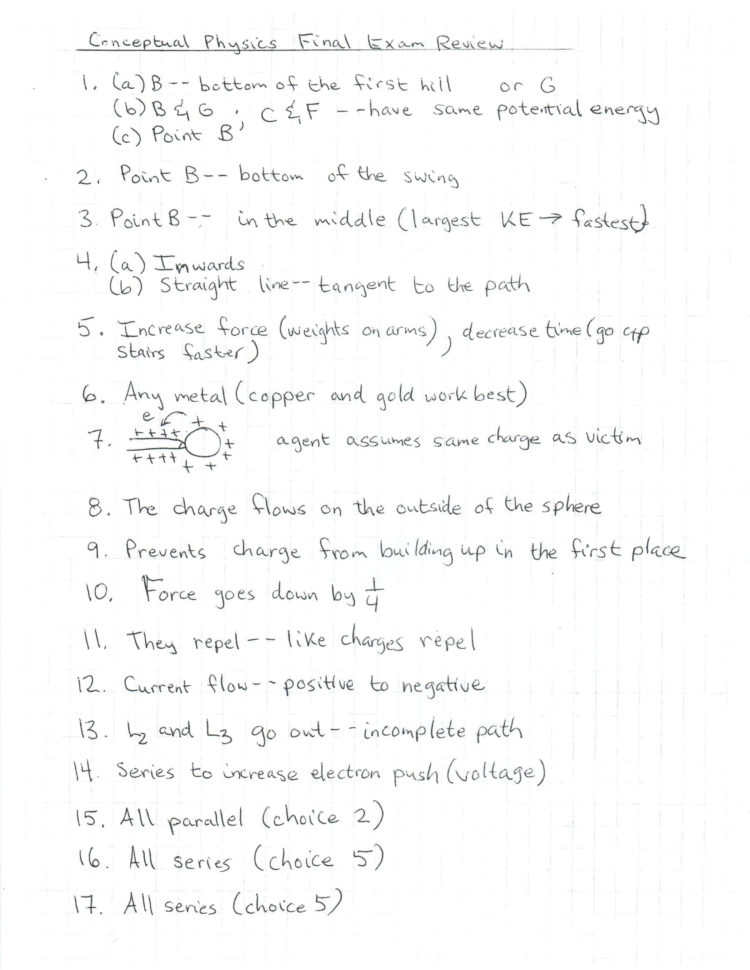 Conceptual Physics Final Exam Review
1. (a) B -- bottom of the first hill or G
(b) B & G ; C & F -- have same potential energy
(c) Point B
2. Point B -- bottom of the swing
3. Point B -- in the middle (largest KE → fastest)
4. (a) Inwards
(b) Straight line -- tangent to the path
5. Increase force (weights on arms), decrease time (go up
stairs faster)
6. Any metal (copper and gold work best)
e +
7. ++++ ++++ + + + + + agent assumes same charge as victim
8. The charge flows on the outside of the sphere
9. Prevents charge from building up in the first place
10. Force goes down by 1/4
11. They repel -- like charges repel
12. Current flow -- positive to negative
13. L2 and L3 go out -- incomplete path
14. Series to increase electron push (voltage)
15. All parallel (choice 2)
16. All series (choice 5)
17. All series (choice 5)